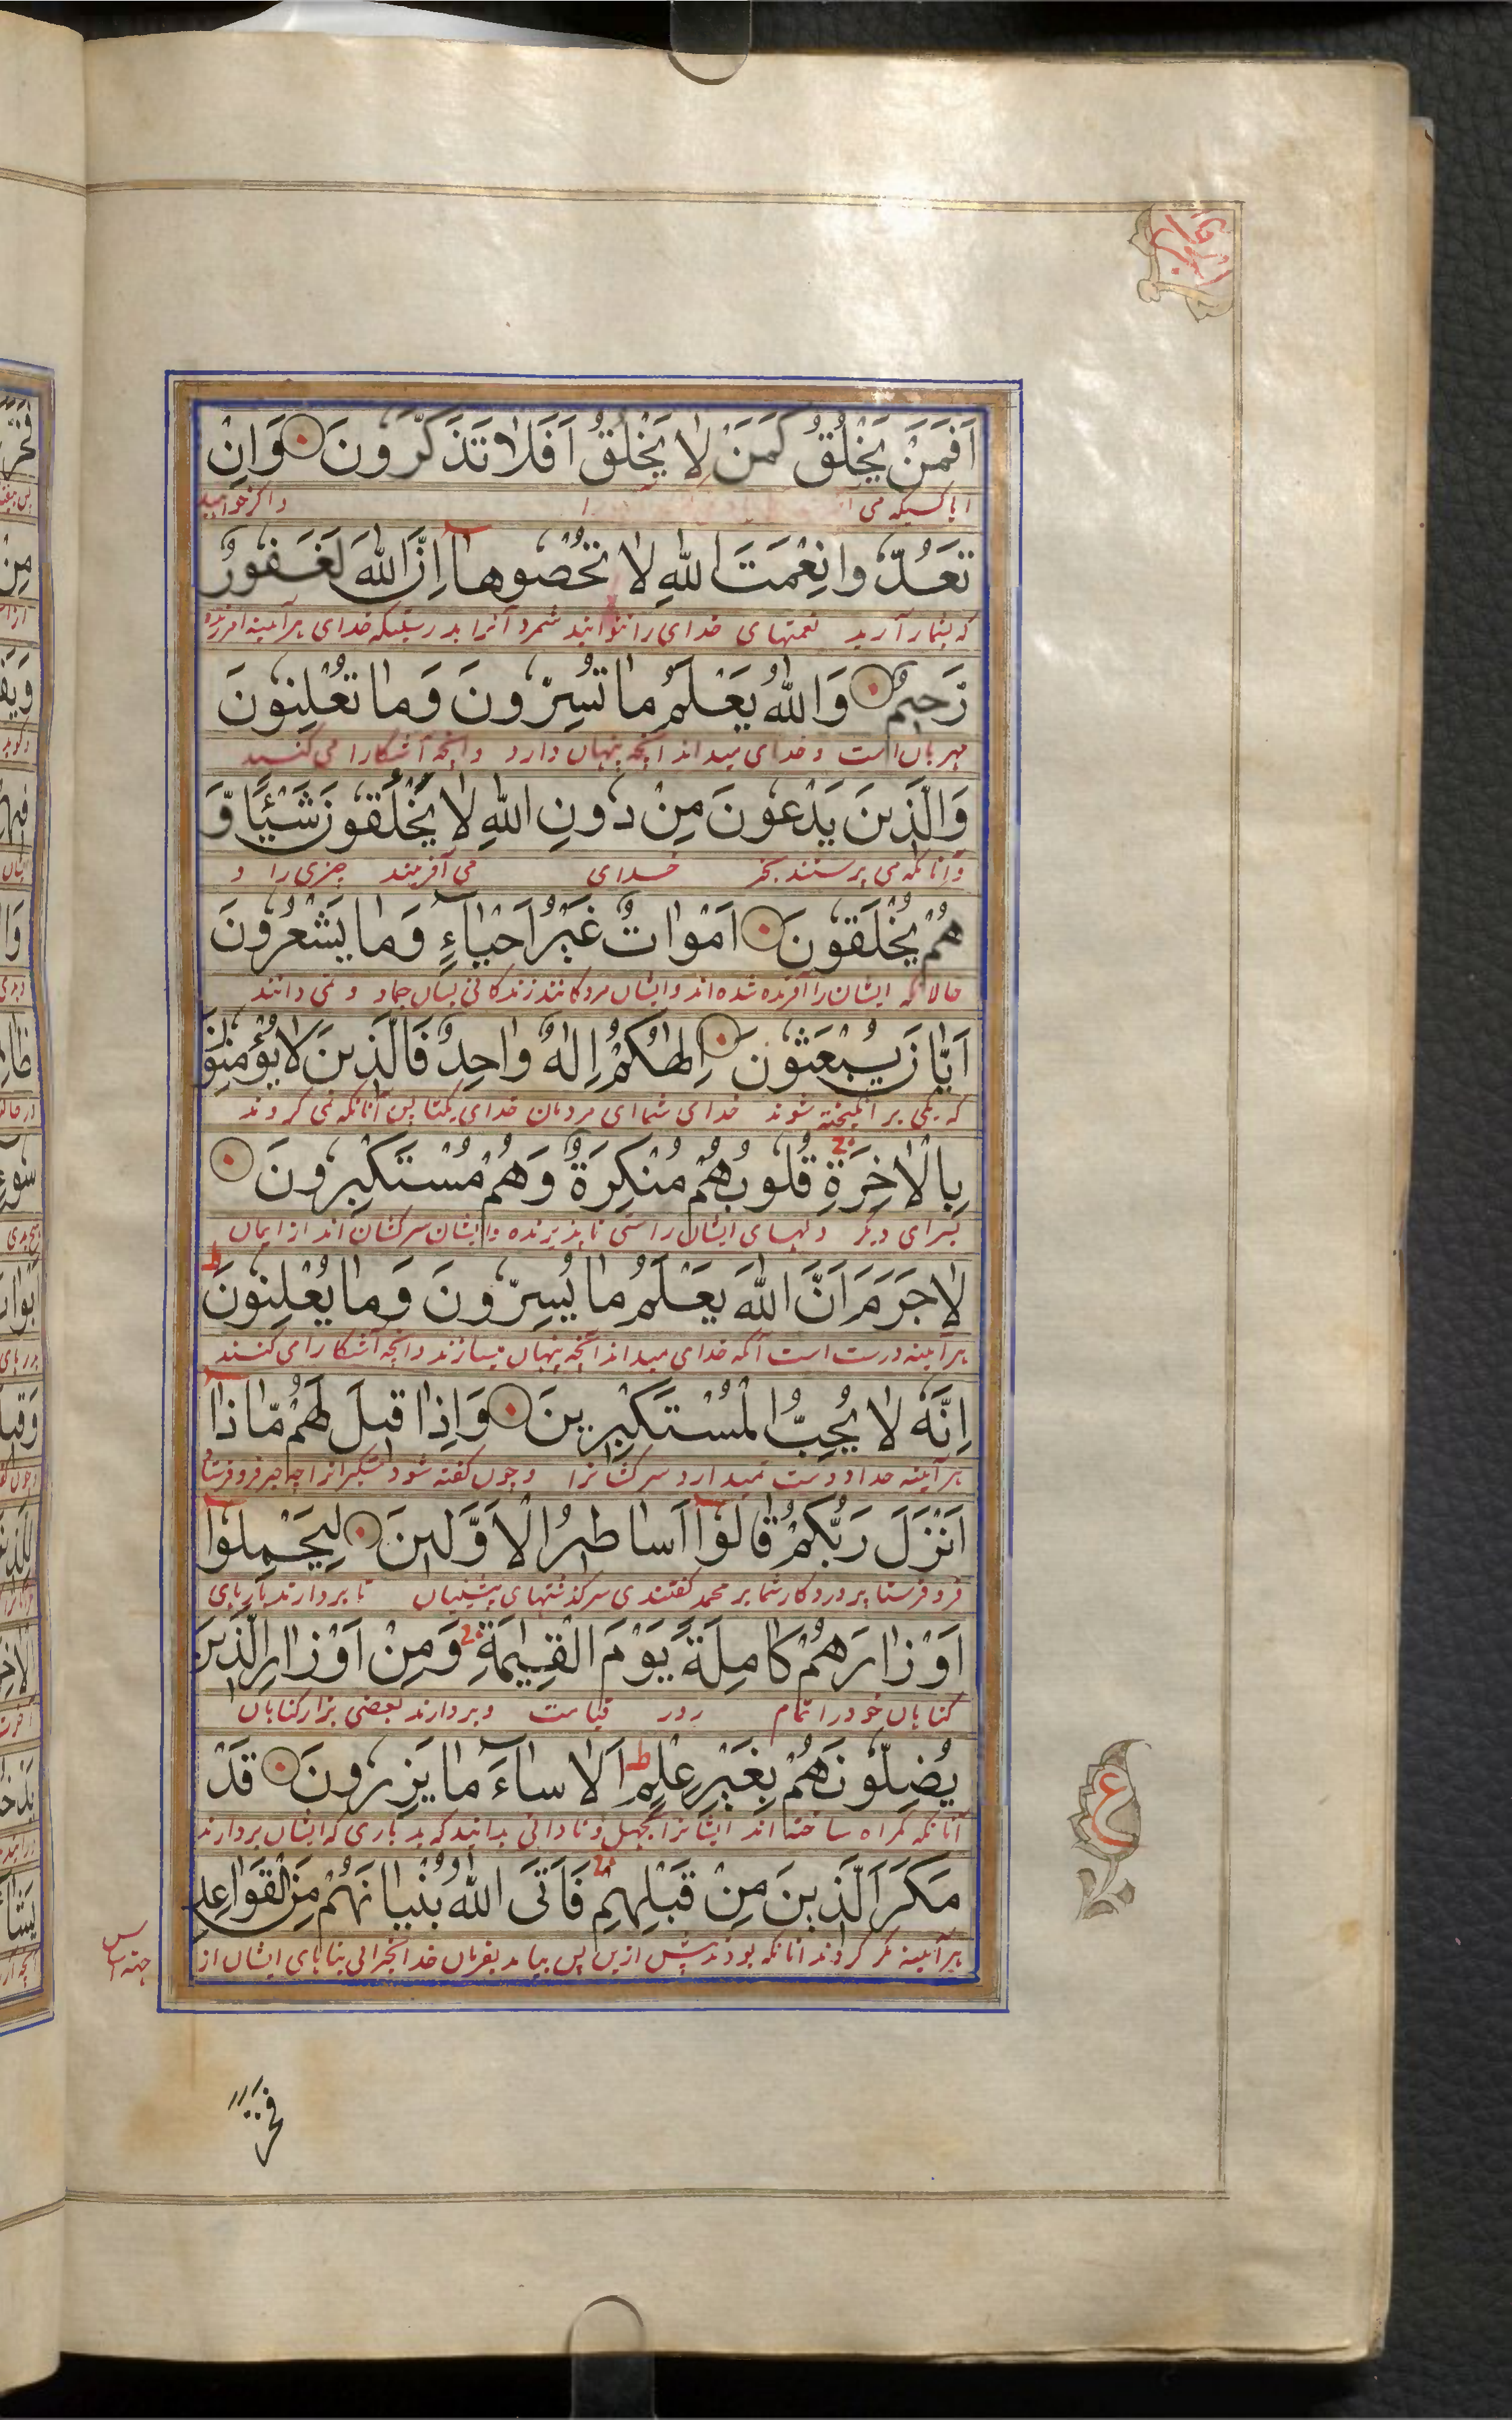 اَفَمَنْ يَخْلُقُ كَمَنْ لَا يَخْلُقُ اَفَلَا تَذَكَّرُونَ وَاِنْ
ایا کسیکه می ا واکر خواهید
تَعُدُّوا نِعْمَتَ اللّٰهِ لَا تُحْصُوهَا اِنَّ اللّٰهَ لَغَفُورٌ
که بشمار آرید نعمتهای خدای را نتوانید شمرد آنرا بدرستیکه خدای هرآینه امرزنده
رَحِيمٌ وَاللّٰهُ يَعْلَمُ مَا تُسِرُّونَ وَمَا تُعْلِنُونَ
مهربان است و خدای میداند آنچه پنهان دارد وانچه آشکارا می کنید
وَالَّذِينَ يَدْعُونَ مِنْ دُونِ اللّٰهِ لَا يَخْلُقُونَ شَيْئًا وَّ
وآنانکه می پرستند بجز خدای می آفرینند چیزی را و
هُمْ يُخْلَقُونَ اَمْوَاتٌ غَيْرُ اَحْيَاءٍ وَمَا يَشْعُرُونَ
حالا که ایشان را آفریده شده اند وایشان مردکانند زندکانی بسان جماد و نمی دانند
اَيَّانَ يُبْعَثُونَ اِلٰهُكُمْ اِلٰهٌ وَاحِدٌ فَالَّذِينَ لَا يُؤْمِنُونَ
که کی بر انکیخته شوند خدای شما ای مردمان خدای یکتا پس آنانکه نمی کروند
بِالْاٰخِرَةِ قُلُوبُهُمْ مُنْكِرَةٌ وَهُمْ مُسْتَكْبِرُونَ
بسرای دیکر دلهای ایشان راستی ناپذیرنده وایشان سرکشان اند از ایمان
لَا جَرَمَ اَنَّ اللّٰهَ يَعْلَمُ مَا يُسِرُّونَ وَمَا يُعْلِنُونَ
هرآینه درست است آنکه خدای میداند آنچه پنهان میسازند وانچه آشکارا می کنند
اِنَّهُ لَا يُحِبُّ الْمُسْتَكْبِرِينَ وَاِذَا قِيلَ لَهُمْ مَّاذَا
هرآینه خدا دوست نمیدارد سرکشانرا و چون کفته شود
اَنْزَلَ رَبُّكُمْ قَالُوا اَسَاطِيرُ الْاَوَّلِينَ لِيَحْمِلُوا
فرو فرستاد پروردکار شما بر محمد کفتندی سرکذشتهای پیشینیان تا بردارند بارهای
اَوْزَارَهُمْ كَامِلَةً يَوْمَ الْقِيٰمَةِ وَمِنْ اَوْزَارِ الَّذِينَ
کناهان خود را تمام روز قیامت وبردارند بعضی کناهان
يُضِلُّونَهُمْ بِغَيْرِ عِلْمٍ اَلَا سَاءَ مَا يَزِرُونَ قَدْ
آنانکه کمراه ساخته اند ایشانرا بجهل و نادانی بدانید که بد باری که ایشان بردارند
مَكَرَ الَّذِينَ مِنْ قَبْلِهِمْ فَاَتَى اللّٰهُ بُنْيَانَهُمْ مِنَ الْقَوَاعِدِ
هرآینه مکر کردند آنانکه بودند پیش ازین پس بیامد بفرمان خدا بناهای ایشان از
ع
فَخَرَّ